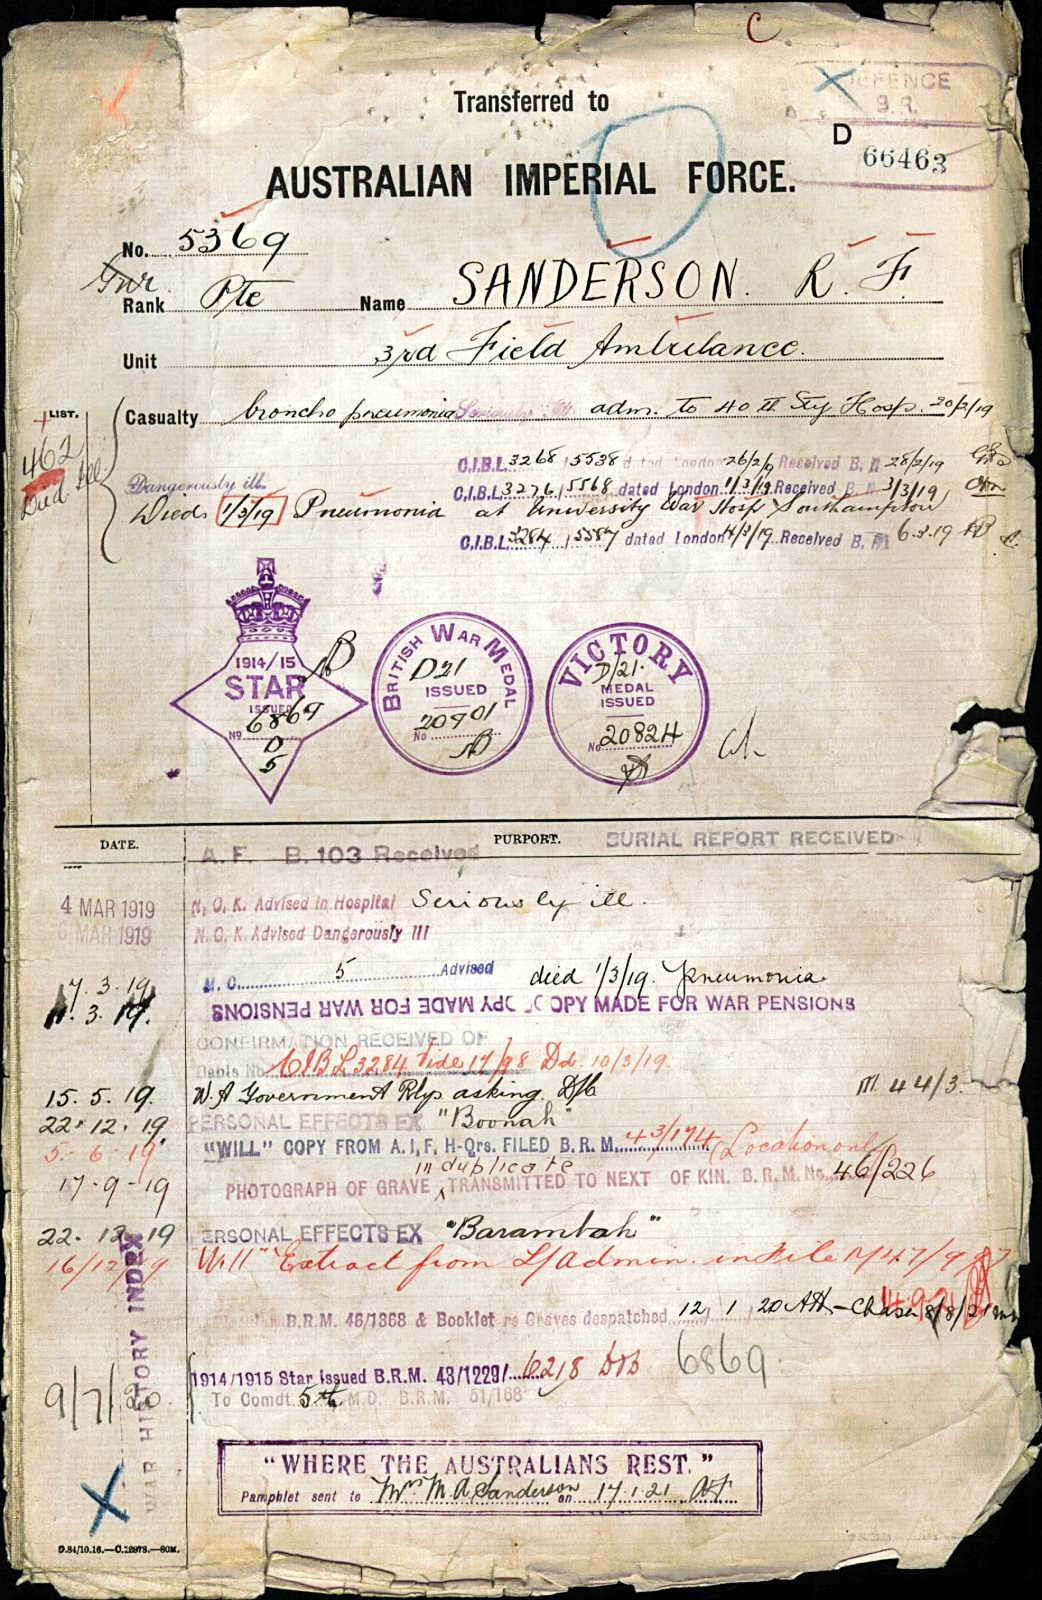 C
Transferred to
DEFENCE
B. R.
D
66463
AUSTRALIAN IMPERIAL FORCE.
No. 5369
Gnr.
Rank Pte Name SANDERSON. R. F.
Unit 3rd Field Ambulance.
LIST.
462
Casualty broncho pneumonia Seriously Ill. adm. to 40 Sty Hosp. 20/2/19
C.I.B.L. 3268 | 5538 dated London 26/2/19 Received B. R 28/2/19
Dangerously ill.
C.I.B.L. 3276 | 5568 dated London 1/3/19 Received B. R 3/3/19
Died 1/3/19 Pneumonia at University War Hosp Southampton
C.I.B.L. 3284 | 5587 dated London 4/3/19 Received B. M 6.3.19
1914/15
STAR
ISSUED
No 6869
D
5
BRITISH WAR MEDAL
D21
ISSUED
20901
No
VICTORY
D/21.
MEDAL
ISSUED
No 20824
DATE. PURPORT. BURIAL REPORT RECEIVED
A. F. B. 103 Received
4 MAR 1919 N. O. K. Advised in Hospital Seriously ill.
6 MAR 1919 N. O. K. Advised Dangerously Ill
7. 3. 19 M. C. 5 Advised died 1/3/19. Pneumonia
11. 3. 19. COPY MADE FOR WAR PENSIONS COPY MADE FOR WAR PENSIONS
CONFIRMATION RECEIVED OF
Cable No. CIBL 3284 Vide 17/98 Dd. 10/3/19.
15. 5. 19. W.A Government Rlys asking D/C M. 44/3.
22. 12. 19. PERSONAL EFFECTS EX "Boonah"
5. 6. 19 "WILL" COPY FROM A.I.F. H-Qrs. FILED B. R. M. 43/174 (Location only
in duplicate
17-9-19 PHOTOGRAPH OF GRAVE TRANSMITTED TO NEXT OF KIN. B. R. M. No. 46/226
22. 12. 19 PERSONAL EFFECTS EX "Barambah"
16/12/19 Will" Extract from L/Admin. in File
B.R.M. 46/1368 & Booklet re Graves despatched 12/1/20
1914/1915 Star issued B.R.M. 43/1229/ 6218 6869
9/7/20 To Comdt. 5th M.D. B.R.M. 51/168
WAR HISTORY INDEX
"WHERE THE AUSTRALIANS REST."
Pamphlet sent to Mrs M. A. Sanderson on 17.1.21
D.84/10.16.—C.12978.—80M.